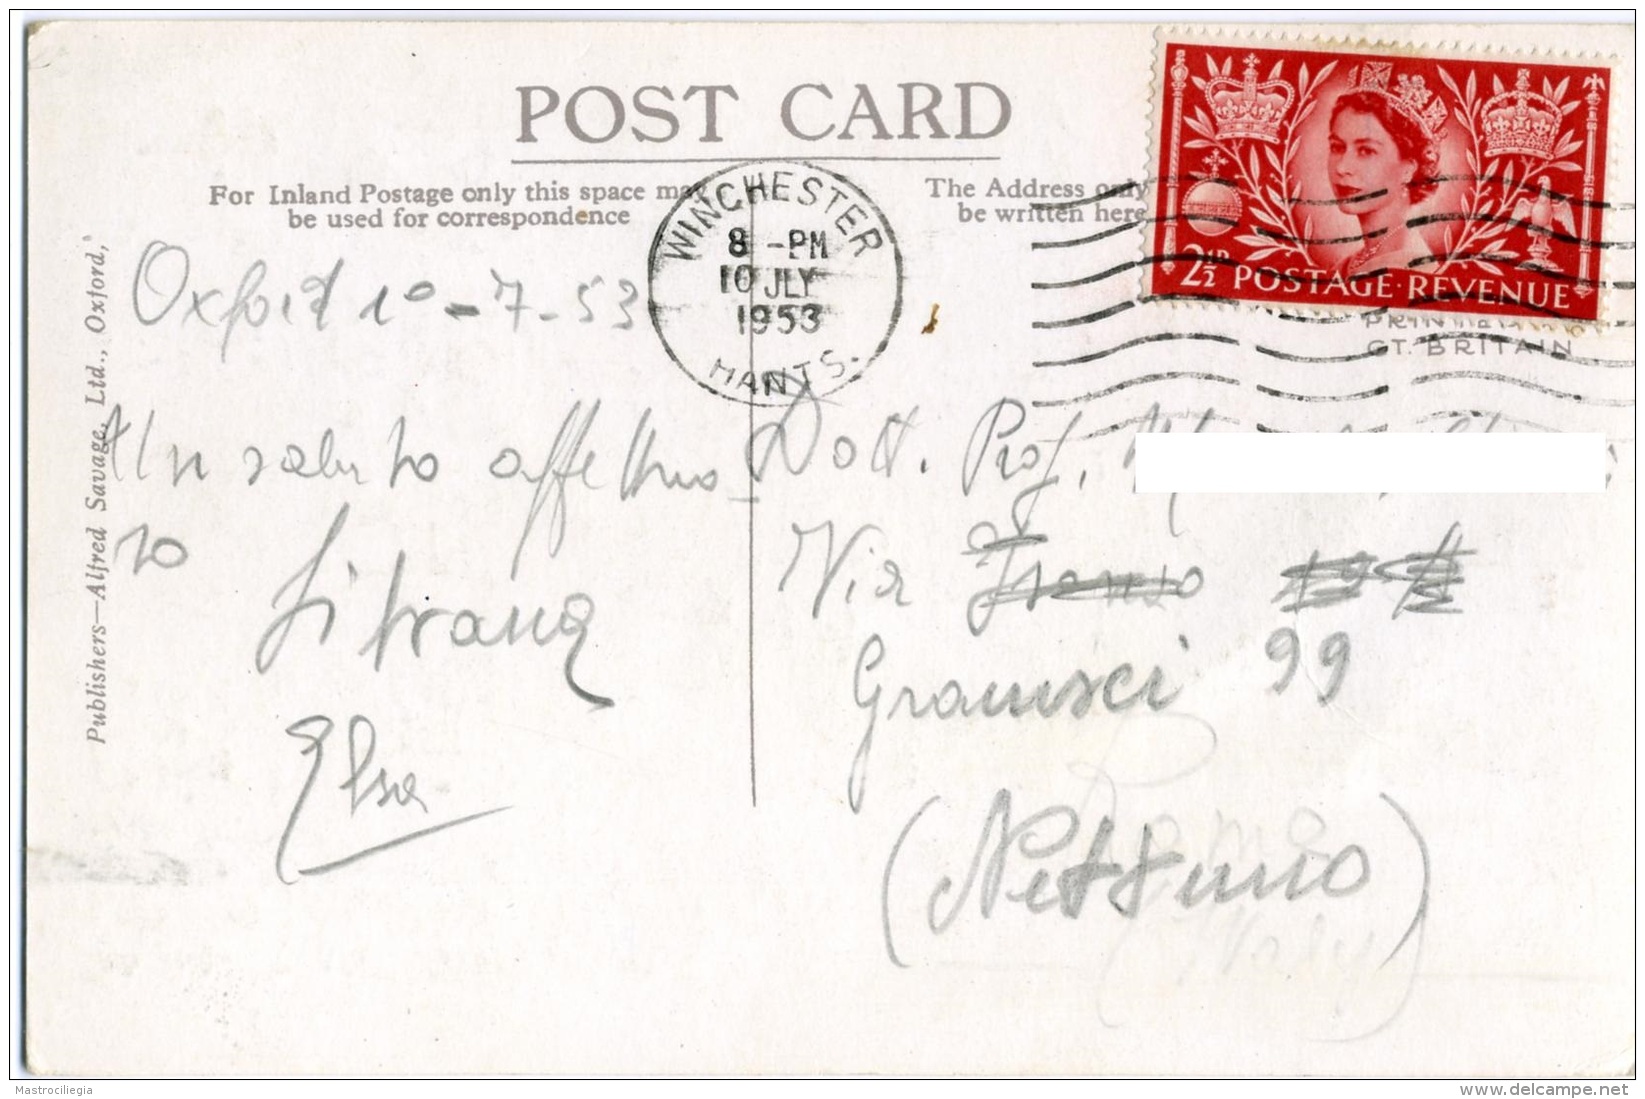 POST CARD
For Inland Postage only this space may
be used for correspondence
The Address only
be written here
WINCHESTER
8 - PM
10 JLY
1953
HANTS.
2½D POSTAGE·REVENUE
PRINTED
GT. BRITAIN
Publishers—Alfred Savage, Ltd., Oxford,
Oxford 10-7-53
Un saluto affettuo-
so
Silvana
Elsa
Dott. Prof.
Via
Gramsci 99
Roma
(Nettuno)
(Italy)
Mastrociliegia
www.delcampe.net